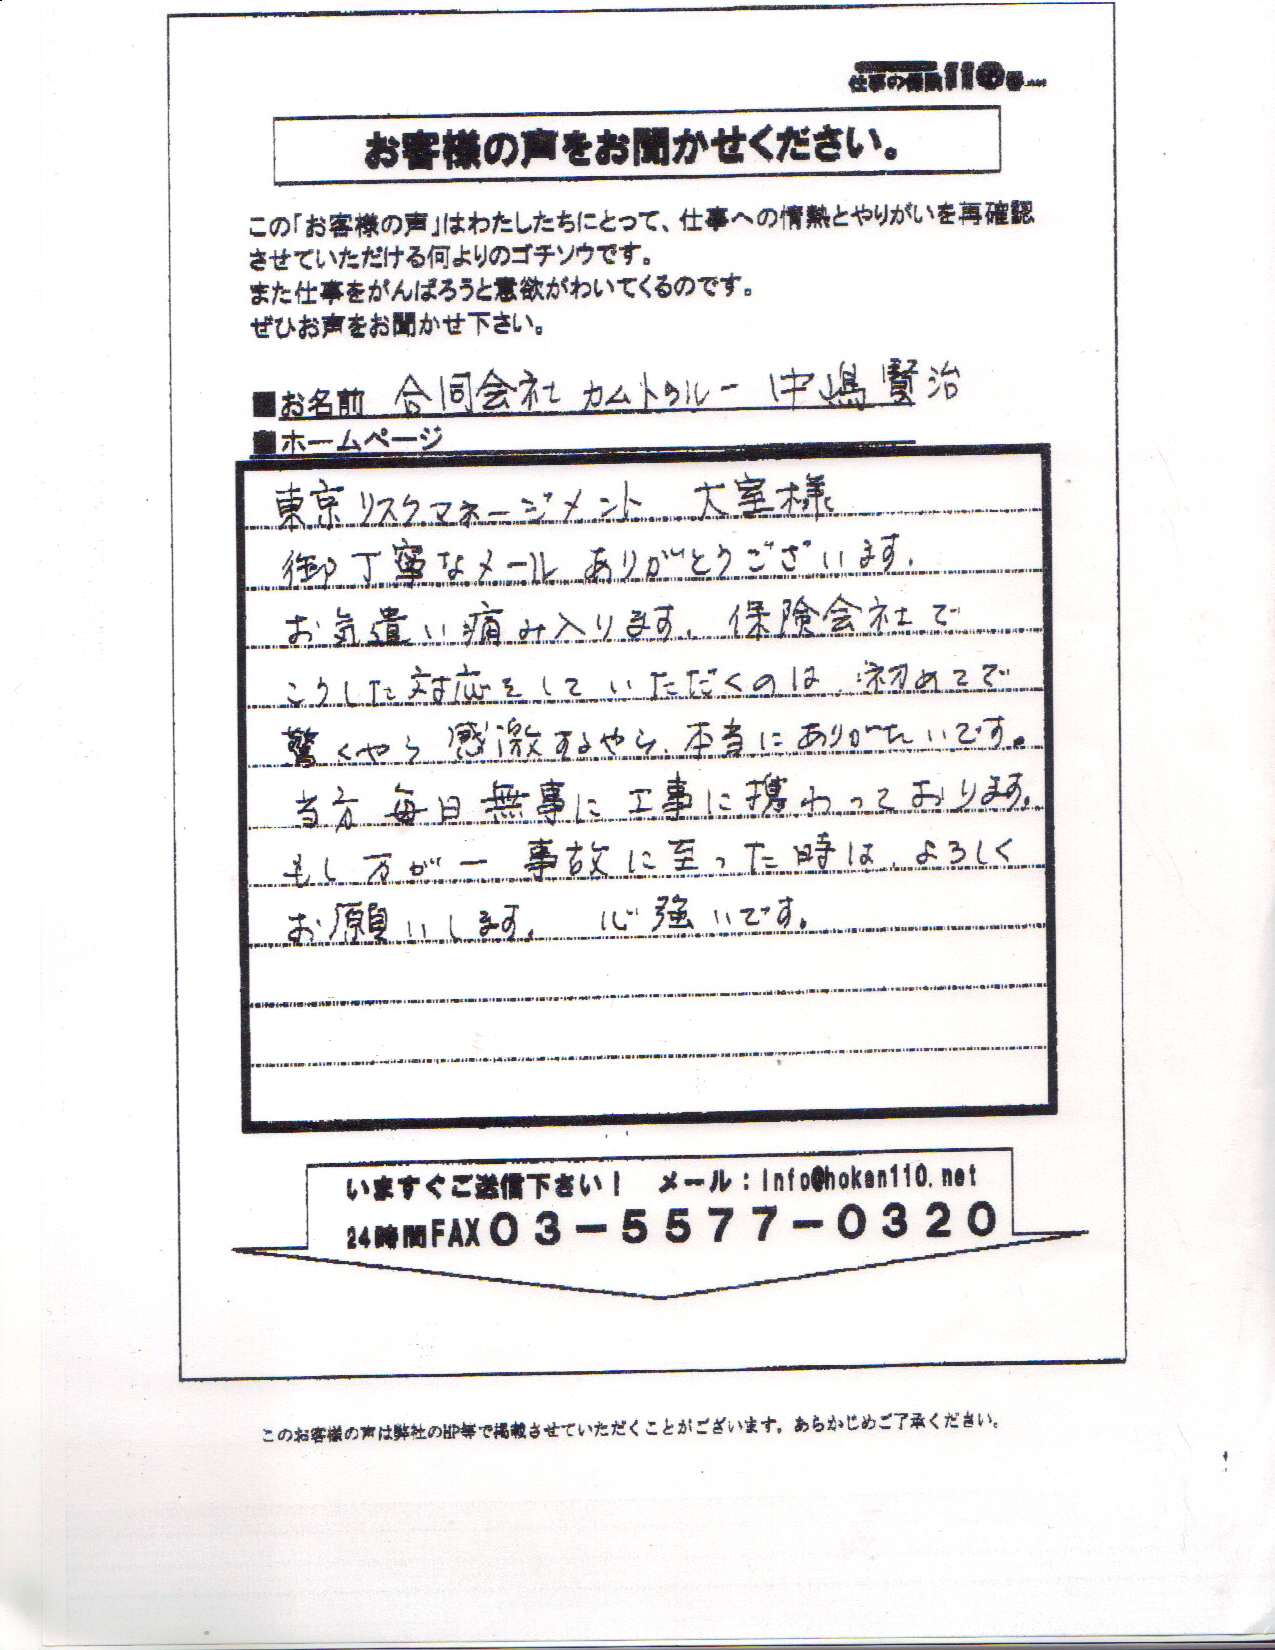 仕事の保険110番
お客様の声をお聞かせください。
この「お客様の声」はわたしたちにとって、仕事への情熱とやりがいを再確認
させていただける何よりのゴチソウです。
また仕事をがんばろうと意欲がわいてくるのです。
ぜひお声をお聞かせ下さい。
■お名前 合同会社 カムトゥルー 中嶋賢治
■ホームページ
東京リスクマネージメント 大室様
御丁寧なメール ありがとうございます。
お気遣い痛み入ります。保険会社で
こうした対応をしていただくのは、初めてで
驚くやら感激するやら、本当にありがたいです。
当方 毎日 無事に 工事に携わっております。
もし万が一 事故に至った時は、よろしく
お願いします。 心強いです。
いますぐご送信下さい! メール:info@hoken110.net
24時間FAX03-5577-0320
このお客様の声は弊社のHP等で掲載させていただくことがございます。あらかじめご了承ください。